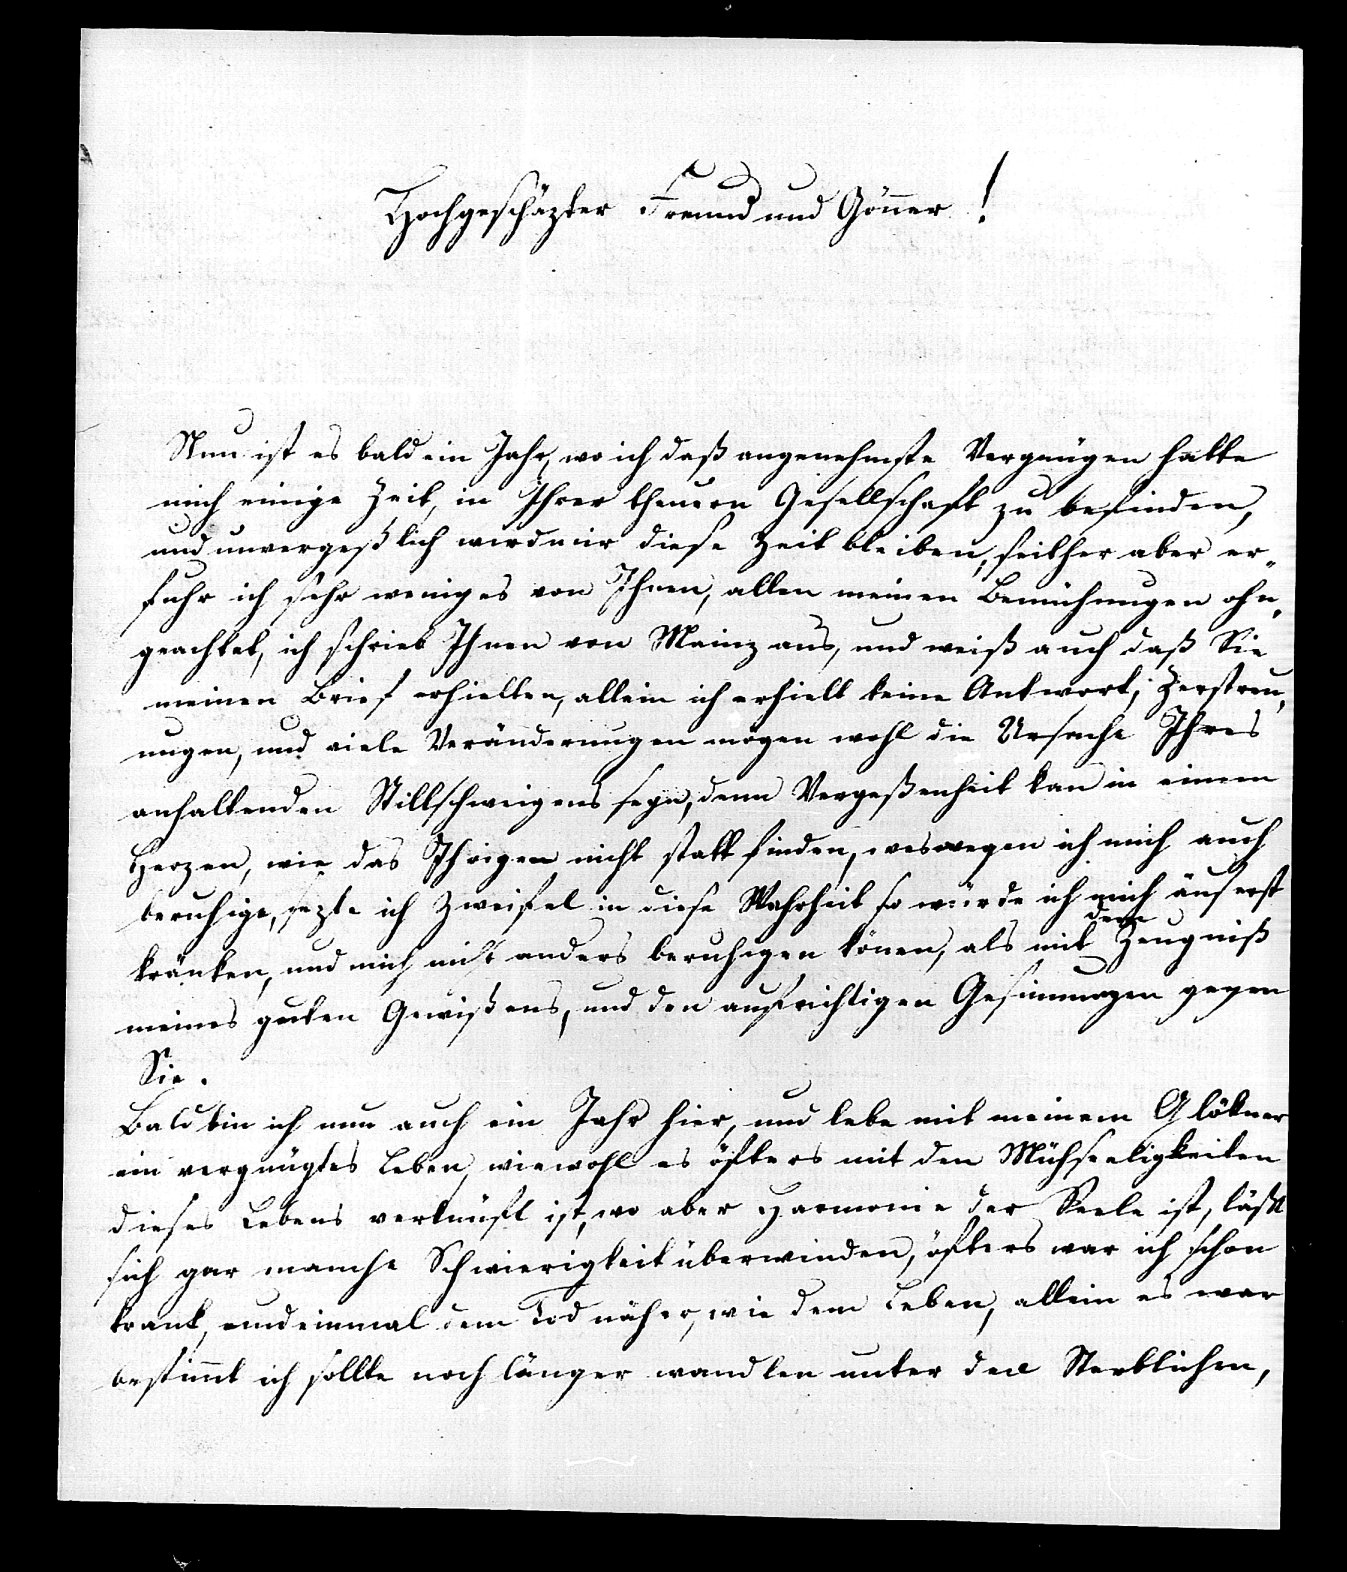 Hochgeschäzter Freund und Gönner!
Nun ist es bald ein Jahr, wo ich daß angenehmste Vergnügen hatte
mich einige Zeit, in Ihrer theuern Gesellschaft zu befinden,
und unvergeßlich wird mir diese Zeit bleiben, seither aber er„
fuhr ich sehr weniges von Ihnen, allen meinen Bemühungen ohn„
geachtet, ich schrieb Ihnen von Mainz aus, und weiß auch daß Sie
meinen Brief erhielten, allein ich erhielt keine Antwort; Zerstreu„
ungen, und viele Veränderungen mögen wohl die Ursache Ihres
anhaltenden Stillschweigens seyn, denn Vergeßenheit kan in einem
Herzen, wie das Ihrigen nicht statt finden, weswegen ich mich auch
beruhige, sezte ich Zweifel in diese Wahrheit so würde ich mich äuserst
kränken, und mich nicht anders beruhigen könen, als mit dem Zeugniß
meines guten Gewißens, und den aufrichtigen Gesinnungen gegen
Sie.
Bald bin ich nun auch ein Jahr hier, und lebe mit meinem Glökner
ein vergnügtes Leben, wiewohl es öfters mit den Mühseeligkeiten
dieses Lebens verknüpft ist, wo aber Harmonie der Seele ist, läßt
sich gar manche Schwierigkeit überwinden, öfters war ich schon
krank, und einmal dem Tod näher, wie dem Leben, allein es war
bestimt ich sollte noch länger wandlen unter den Sterblichen,